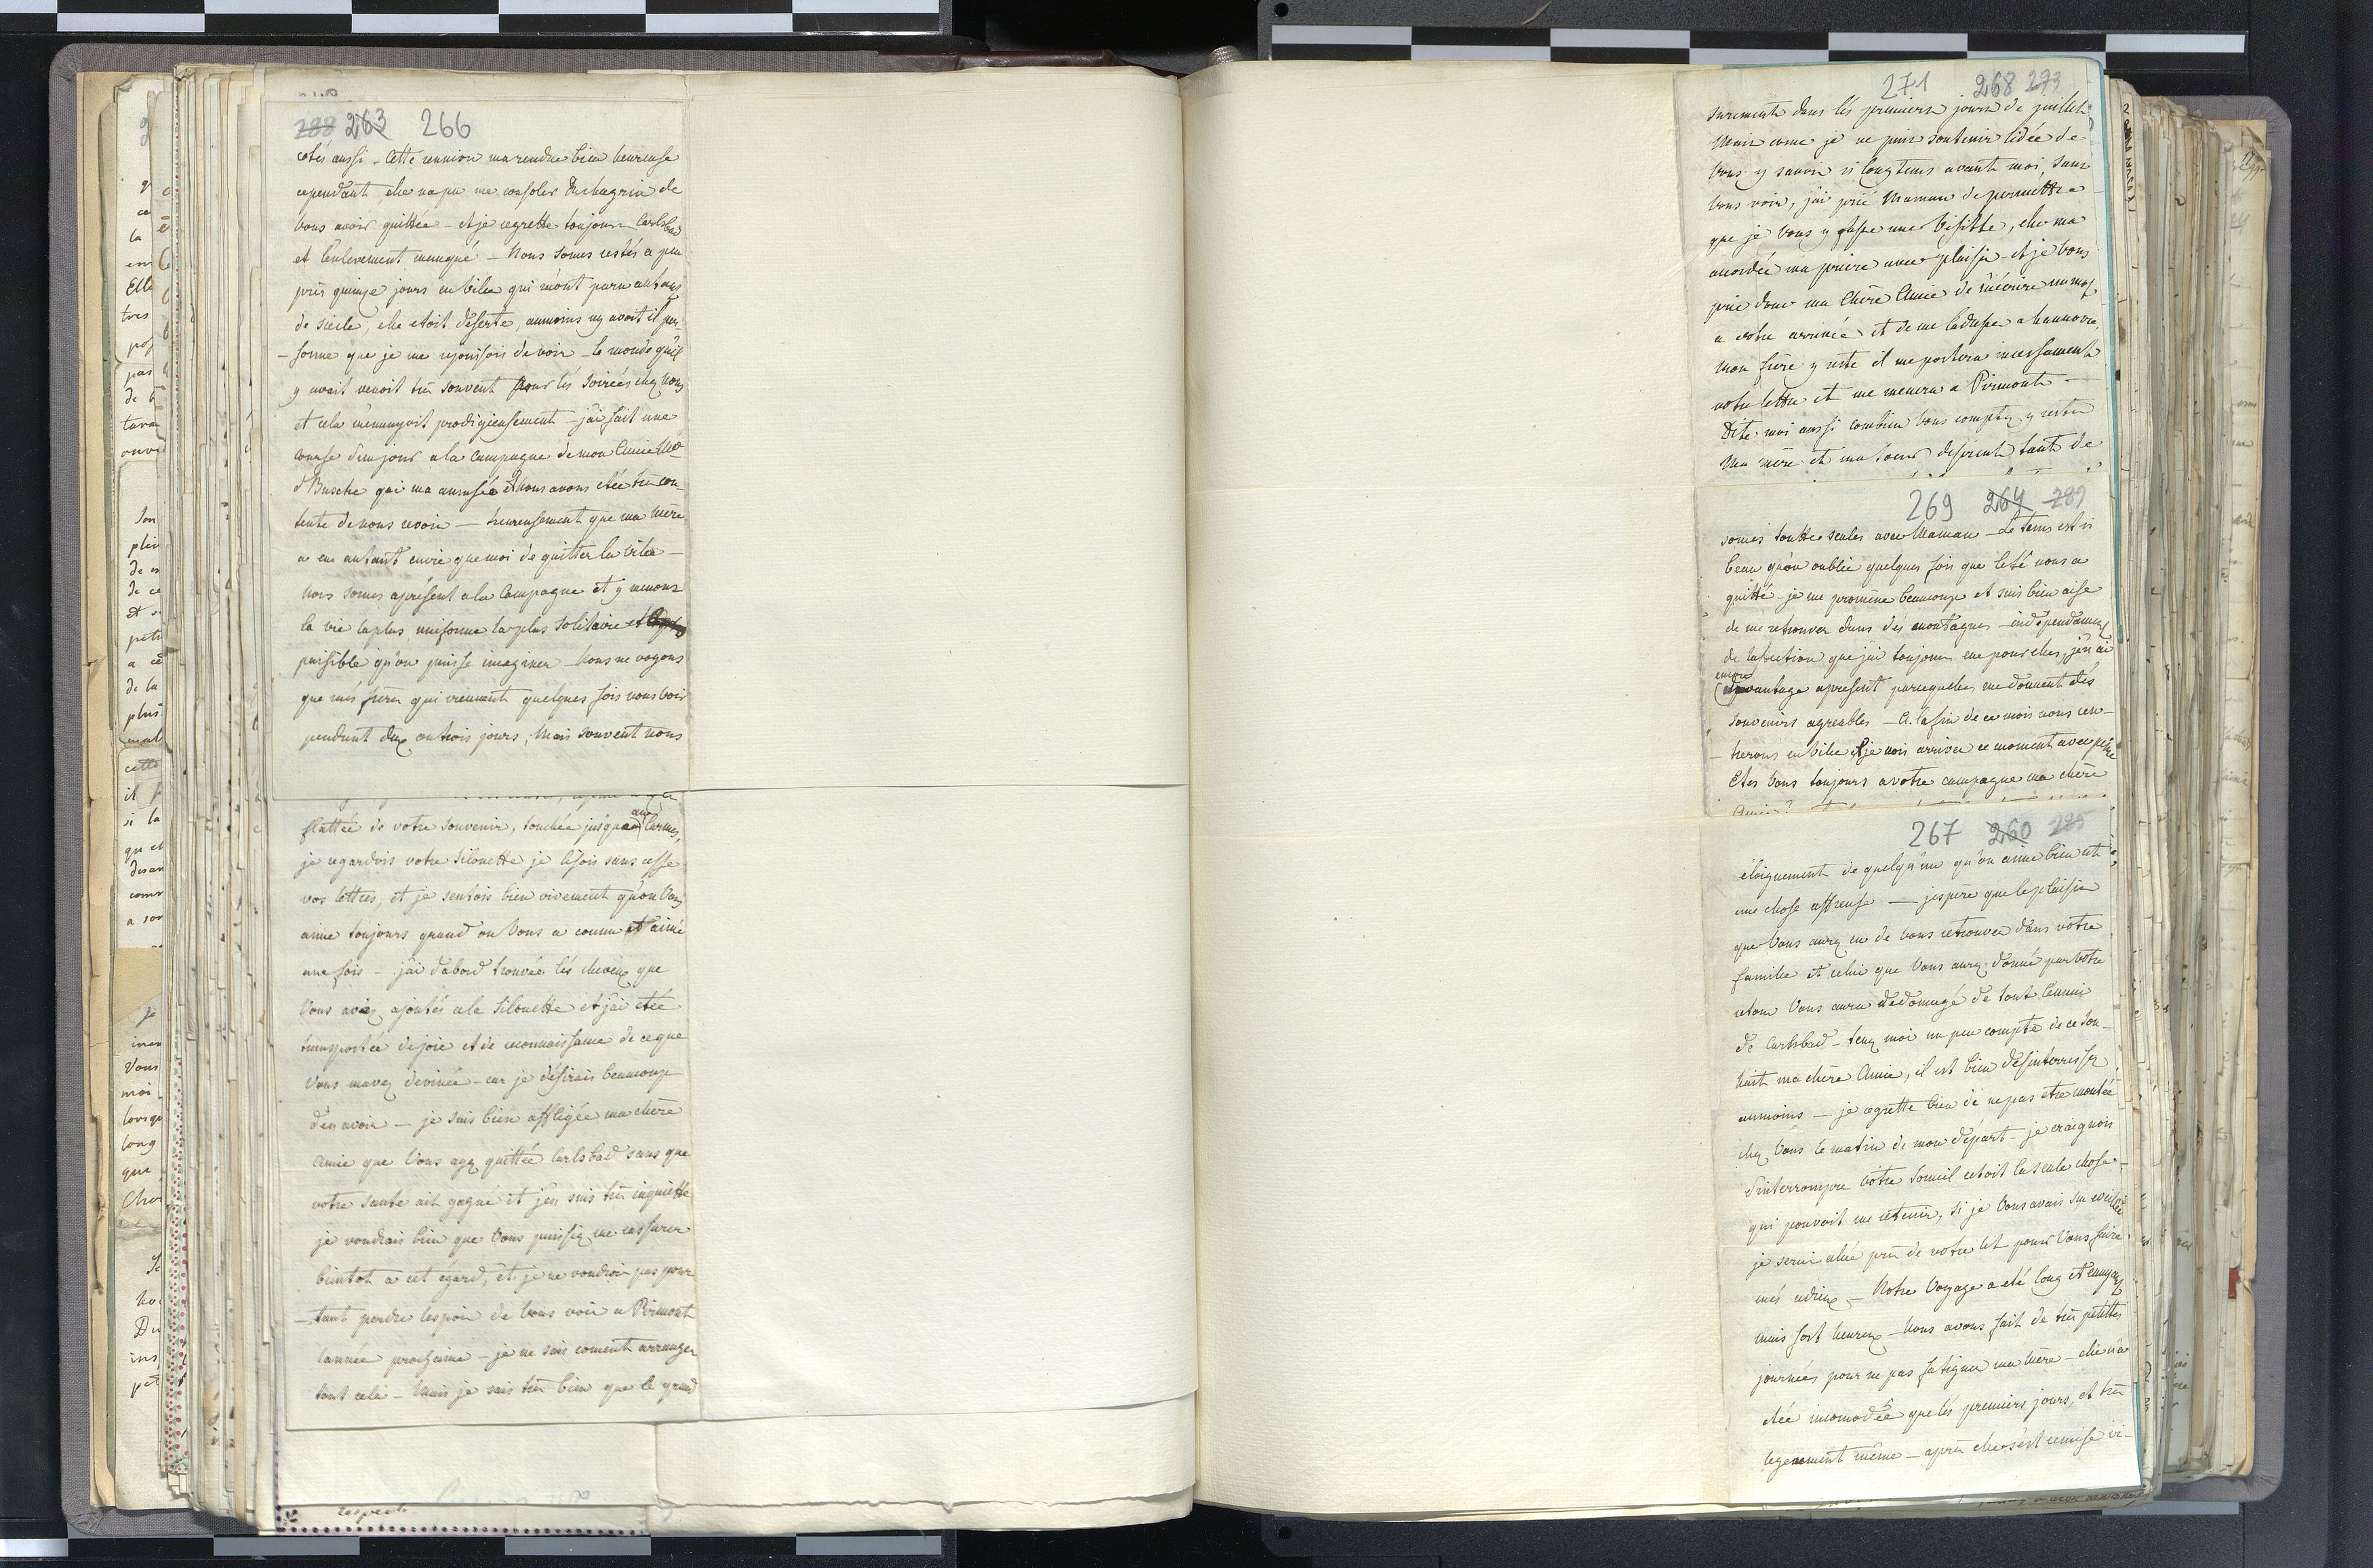 288 263 266
cotés aussi - Cette reunion ma rendue bien heureuse
cependant elle na pu me consoler du chagrin de
vous avoir quittée - et je regrette toujours Carlsbad
et l'enlevement manqué - Nous somes restés a peu
près quinze jours en ville qui m'ont paru autant
de siecle, elle etoit deserte, aumoins ny avoit il per-
-sonne que je me rejouisois de voir - le monde qu'il
y avoit venoit très souvent pour lés soirées chez nous
et cela m'ennuyoit prodigieusement - j'ai fait une
course d'un jour a la campagne de mon Amie Md
d Busche qui ma amusée et nous avons étée très con-
tente de nous revoir - heureusement que ma mere
a eue autant envie que moi de quitter la ville -
nous somes apresent a la Campagne et y menons
la vie la plus uniforme la plus solitaire et
paisible qu'on puisse imaginer - Nous ne voyons
que més frères qui viennent quelques fois nous voir
pendant deux ou trois jours, Mais souvent nous
flattée de votre souvenir, touchée jusqu'au aux larmes,
je regardois votre silouette je lisois sans cesse
vos lettres, et je sentois bien vivement qu'on vous
aime toujours quand on vous a connu et aimé
une fois - j'ai d'abord trouvée lés cheveux que
vous aviez ajoutés a la silouette et j'ai etée
transportée de joie et de reconnoissance de ce que
vous m'avez devinée - car je désirais beaucoup
d'en avoir - je suis bien affligée ma chère
Amie que vous ayez quittée Carlsbad sans que
votre santé ait gagné et j'en suis très inquiette
je voudrais bien que vous puissiez me rassurer
bientot a cet égard, et je ne voudrois pas pour
-tant perdre l'espoir de vous voir a Pirmont
l'année prochaine - je ne sais coment arranger
tout cela - Mais je sais très bien que le grand
respect
271 268 293
surement dans lés premiers jours de juillet
Mais come je ne puis soutenir lidée de
vous y savoir si longtems avant moi, sans
vous voir, j'ai prié Maman de permettre
que je vous y fasse une visitte, elle ma
accordée ma priere avec plaisir - et je vous
prie donc ma chère Amie de m'écrire un mot
a votre arrivée et de me ladresser a hannovre,
mon frère y reste il me portera incessament
votre lettre et me menera a Pirmont -
Dite moi aussi combien vous comptez y rester
Ma mère et ma soeur desirent tant de
269 264 289
somes toutte seules avec Maman - Le tems est si
beau qu'on oublie quelques fois que lété nous a
quitté - je me promène beaucoup et suis bien aise
de me retrouver dans des montagnes - indépendament
de lafection que j'ai toujours eue pour elles, j'en ai
encore
davantage apresent parcequelles me donnent dés
souvenirs agreables - A la fin de ce mois nous ren-
-trerons en ville et je vois arriver ce moment avec peine
Etes vous toujours a votre campagne ma chère
Amie?
267 260 285
éloignement de quelqu'un qu'on aime bien est
une chose affreuse - jespère que le plaisir
que vous aurez eu de vous retrouver dans votre
famille et celui que vous aurez donné par votre
retour vous aura dedomagé de tout l'ennui
de Carlsbad - tenez moi un peu compte de ce sou-
hait ma chère Amie, il est bien desinterressez
aumoins - je regrette bien de ne pas etre montée
chez vous le matin de mon départ - je craignois
d'interrompre votre someil cetoit la seule chose
qui pouvoit me retenir, si je vous avais su eveillée
je serois allée près de votre lit pour vous faire
més adieux - Notre voyage a eté long et ennuyeux
mais fort heureux - nous avons fait de très petittes
journées pour ne pas fatiguer ma mère - elle n'a
étée incomodée que lés premiers jours, et très
legerement même - après elle s'est remise vi-